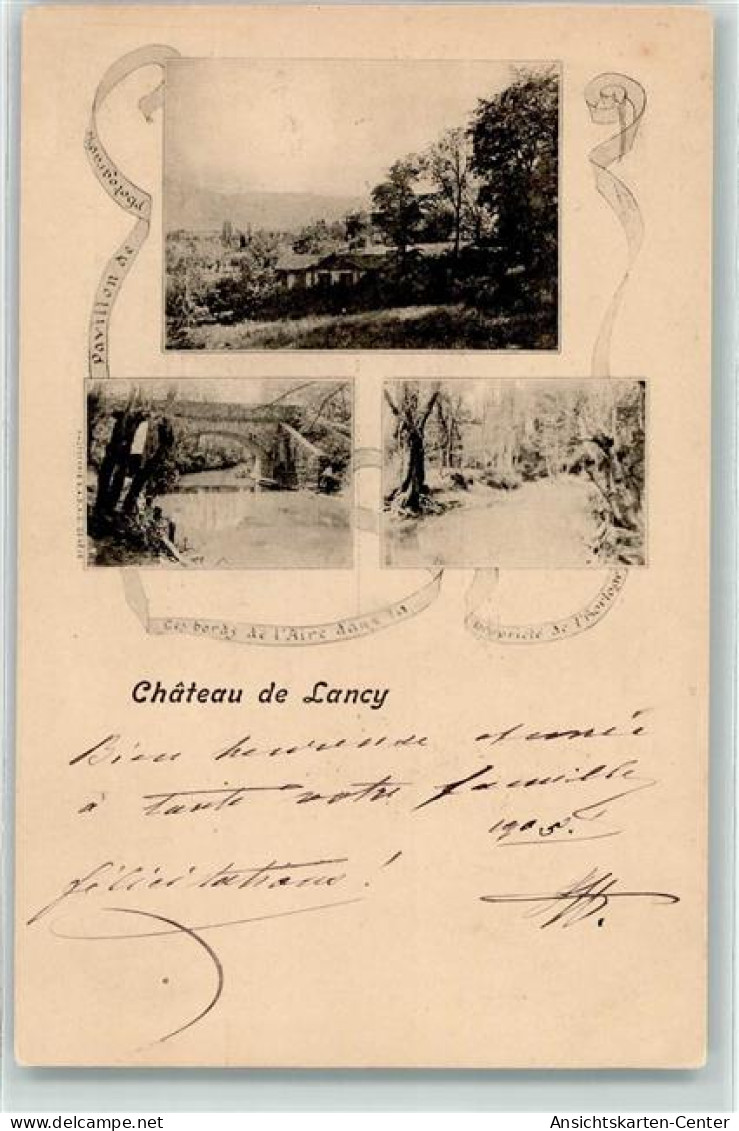 Pavillon de Photographie
Les bords de l'Aire dans la
Propriété de l'Horloge
Château de Lancy
Bien heureuse année
à toute votre famille
1905.
félicitations !
Ansichtskarten-Center